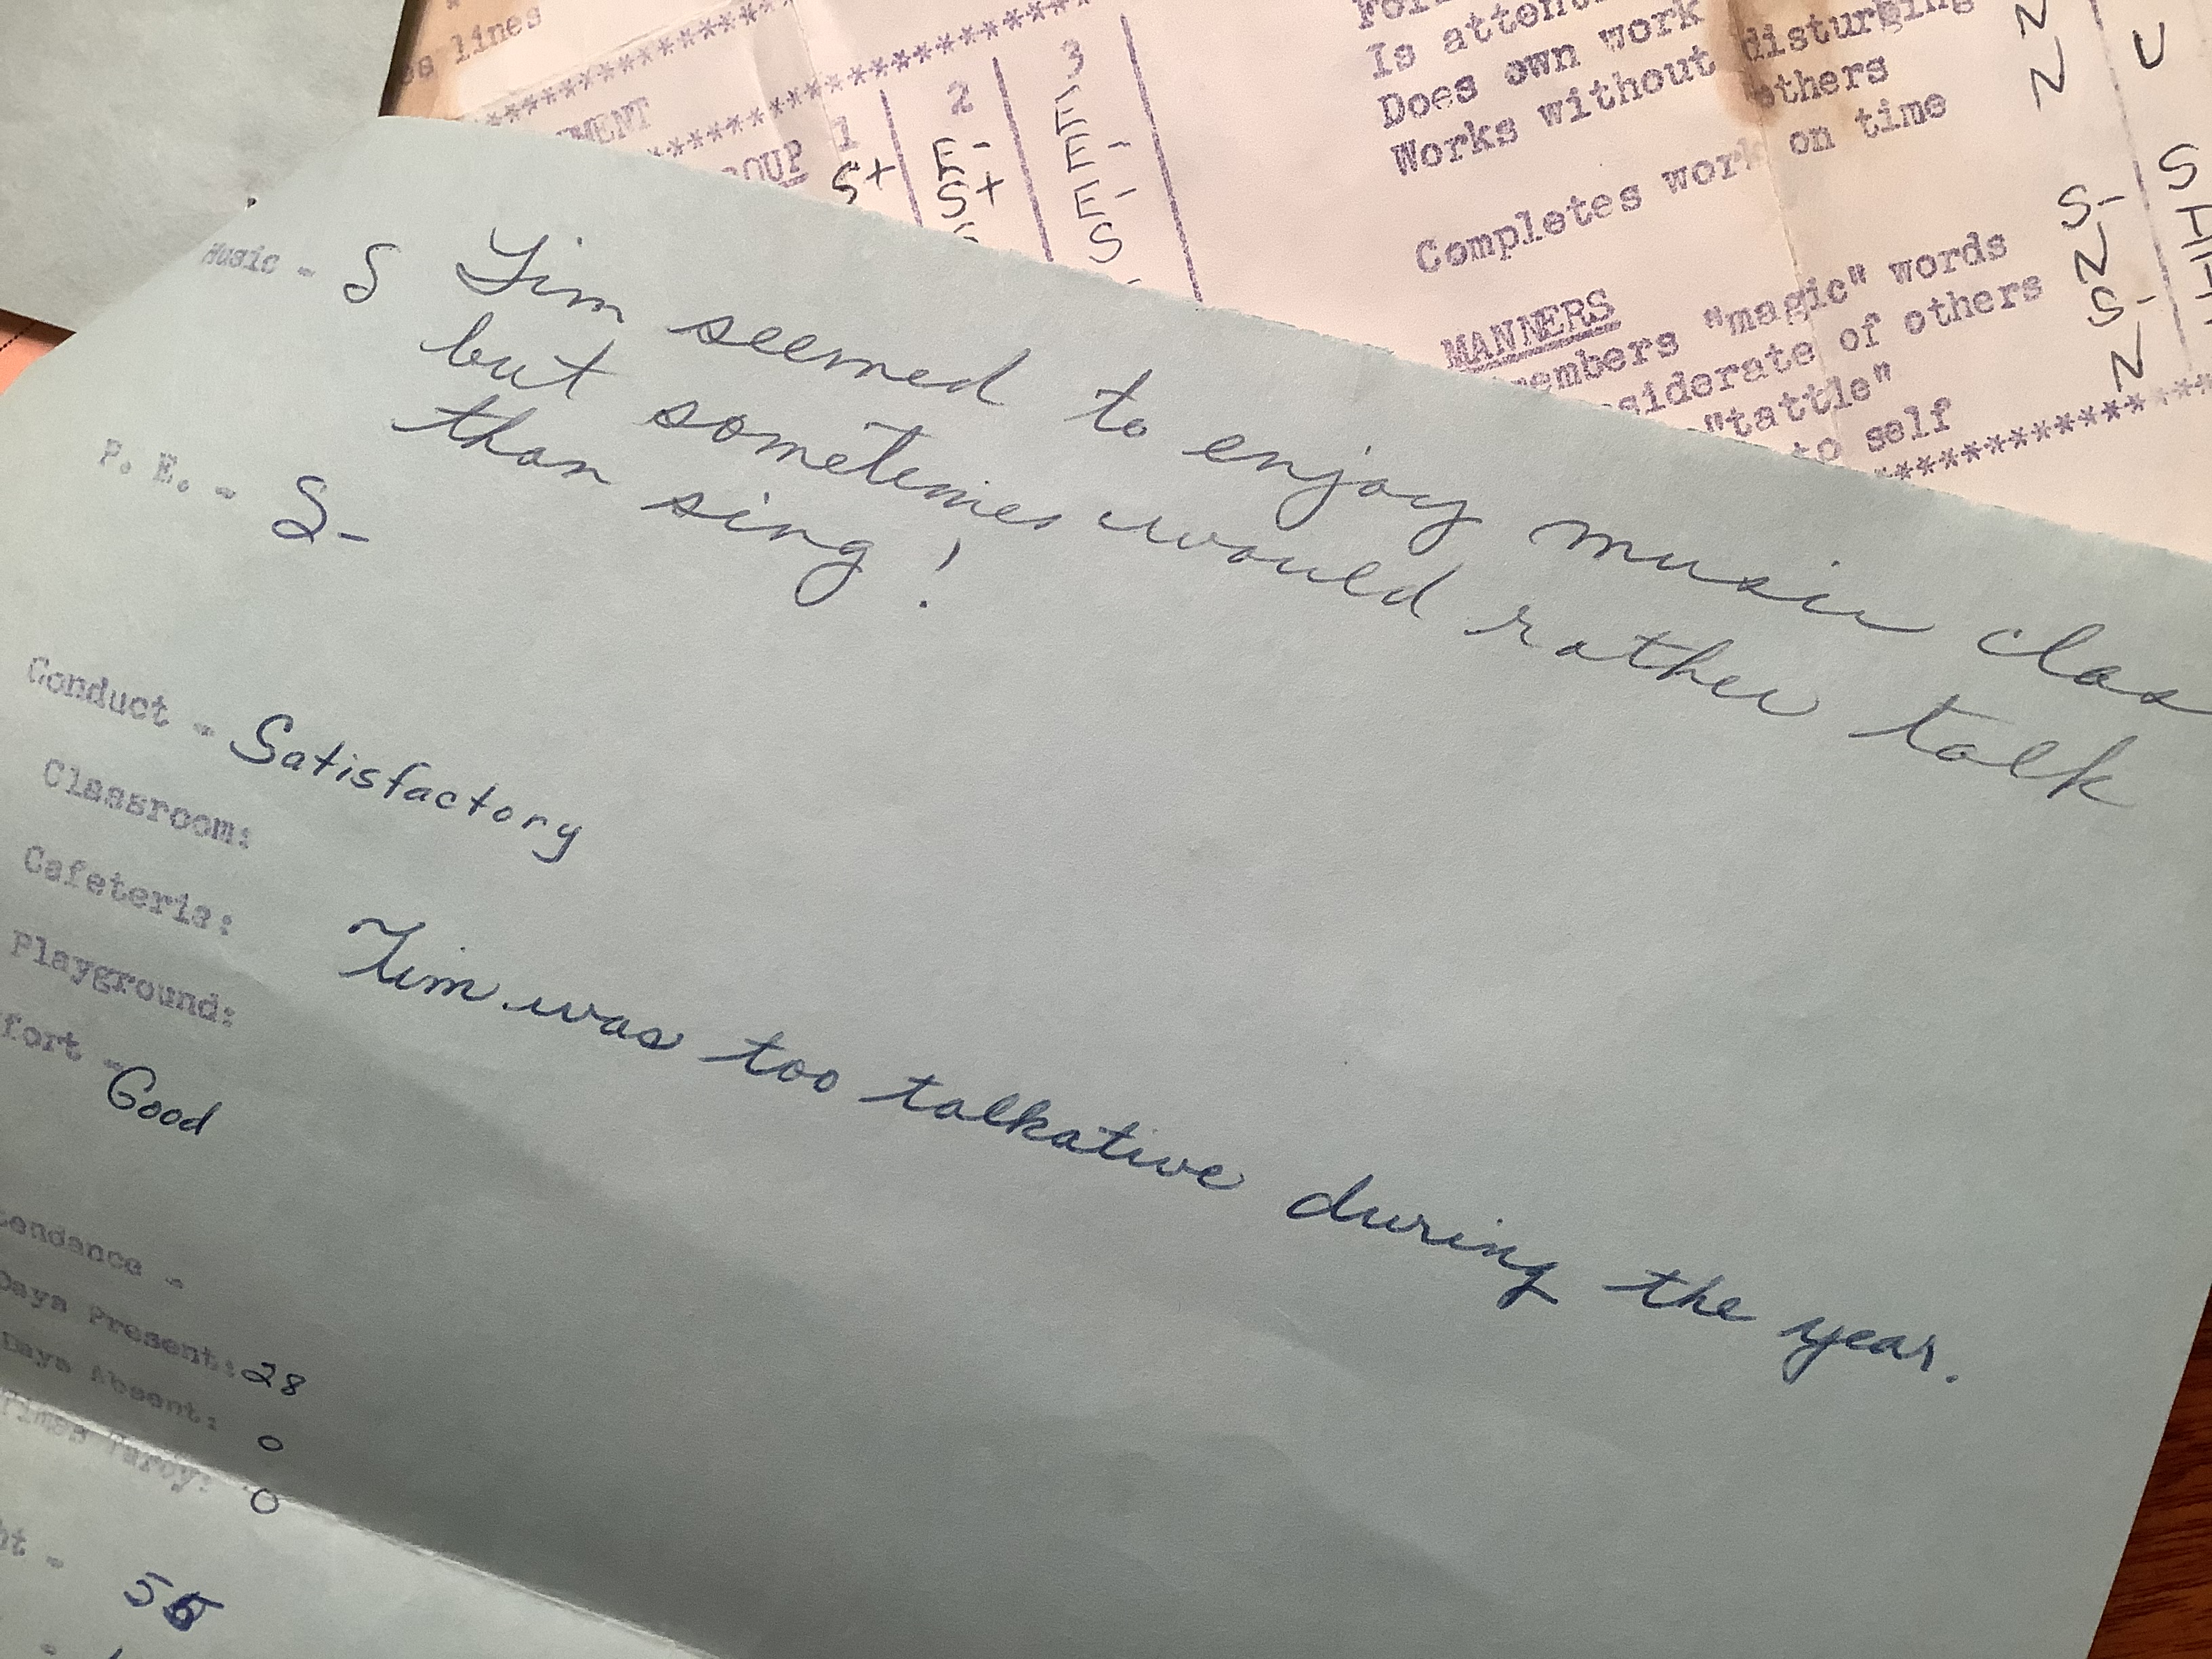 lines
1 2 3
S+ E- E
S+ E-
E-
S
Is
Does own work
Works without disturbing
others
Completes work on time
MANNERS
"magic" words
of others
"tattle"
to self
N
N U
S
S-
N
S-
N
Music - S Tim seemed to enjoy music clas
but sometimes would rather talk
than sing!
P. E. - S-
Conduct - Satisfactory
Classroom:
Cafeteria:
Playground:
Tim was too talkative during the year.
fort - Good
tendance -
Days Present: 28
Days Absent: 0
Times Tardy: 0
ht -